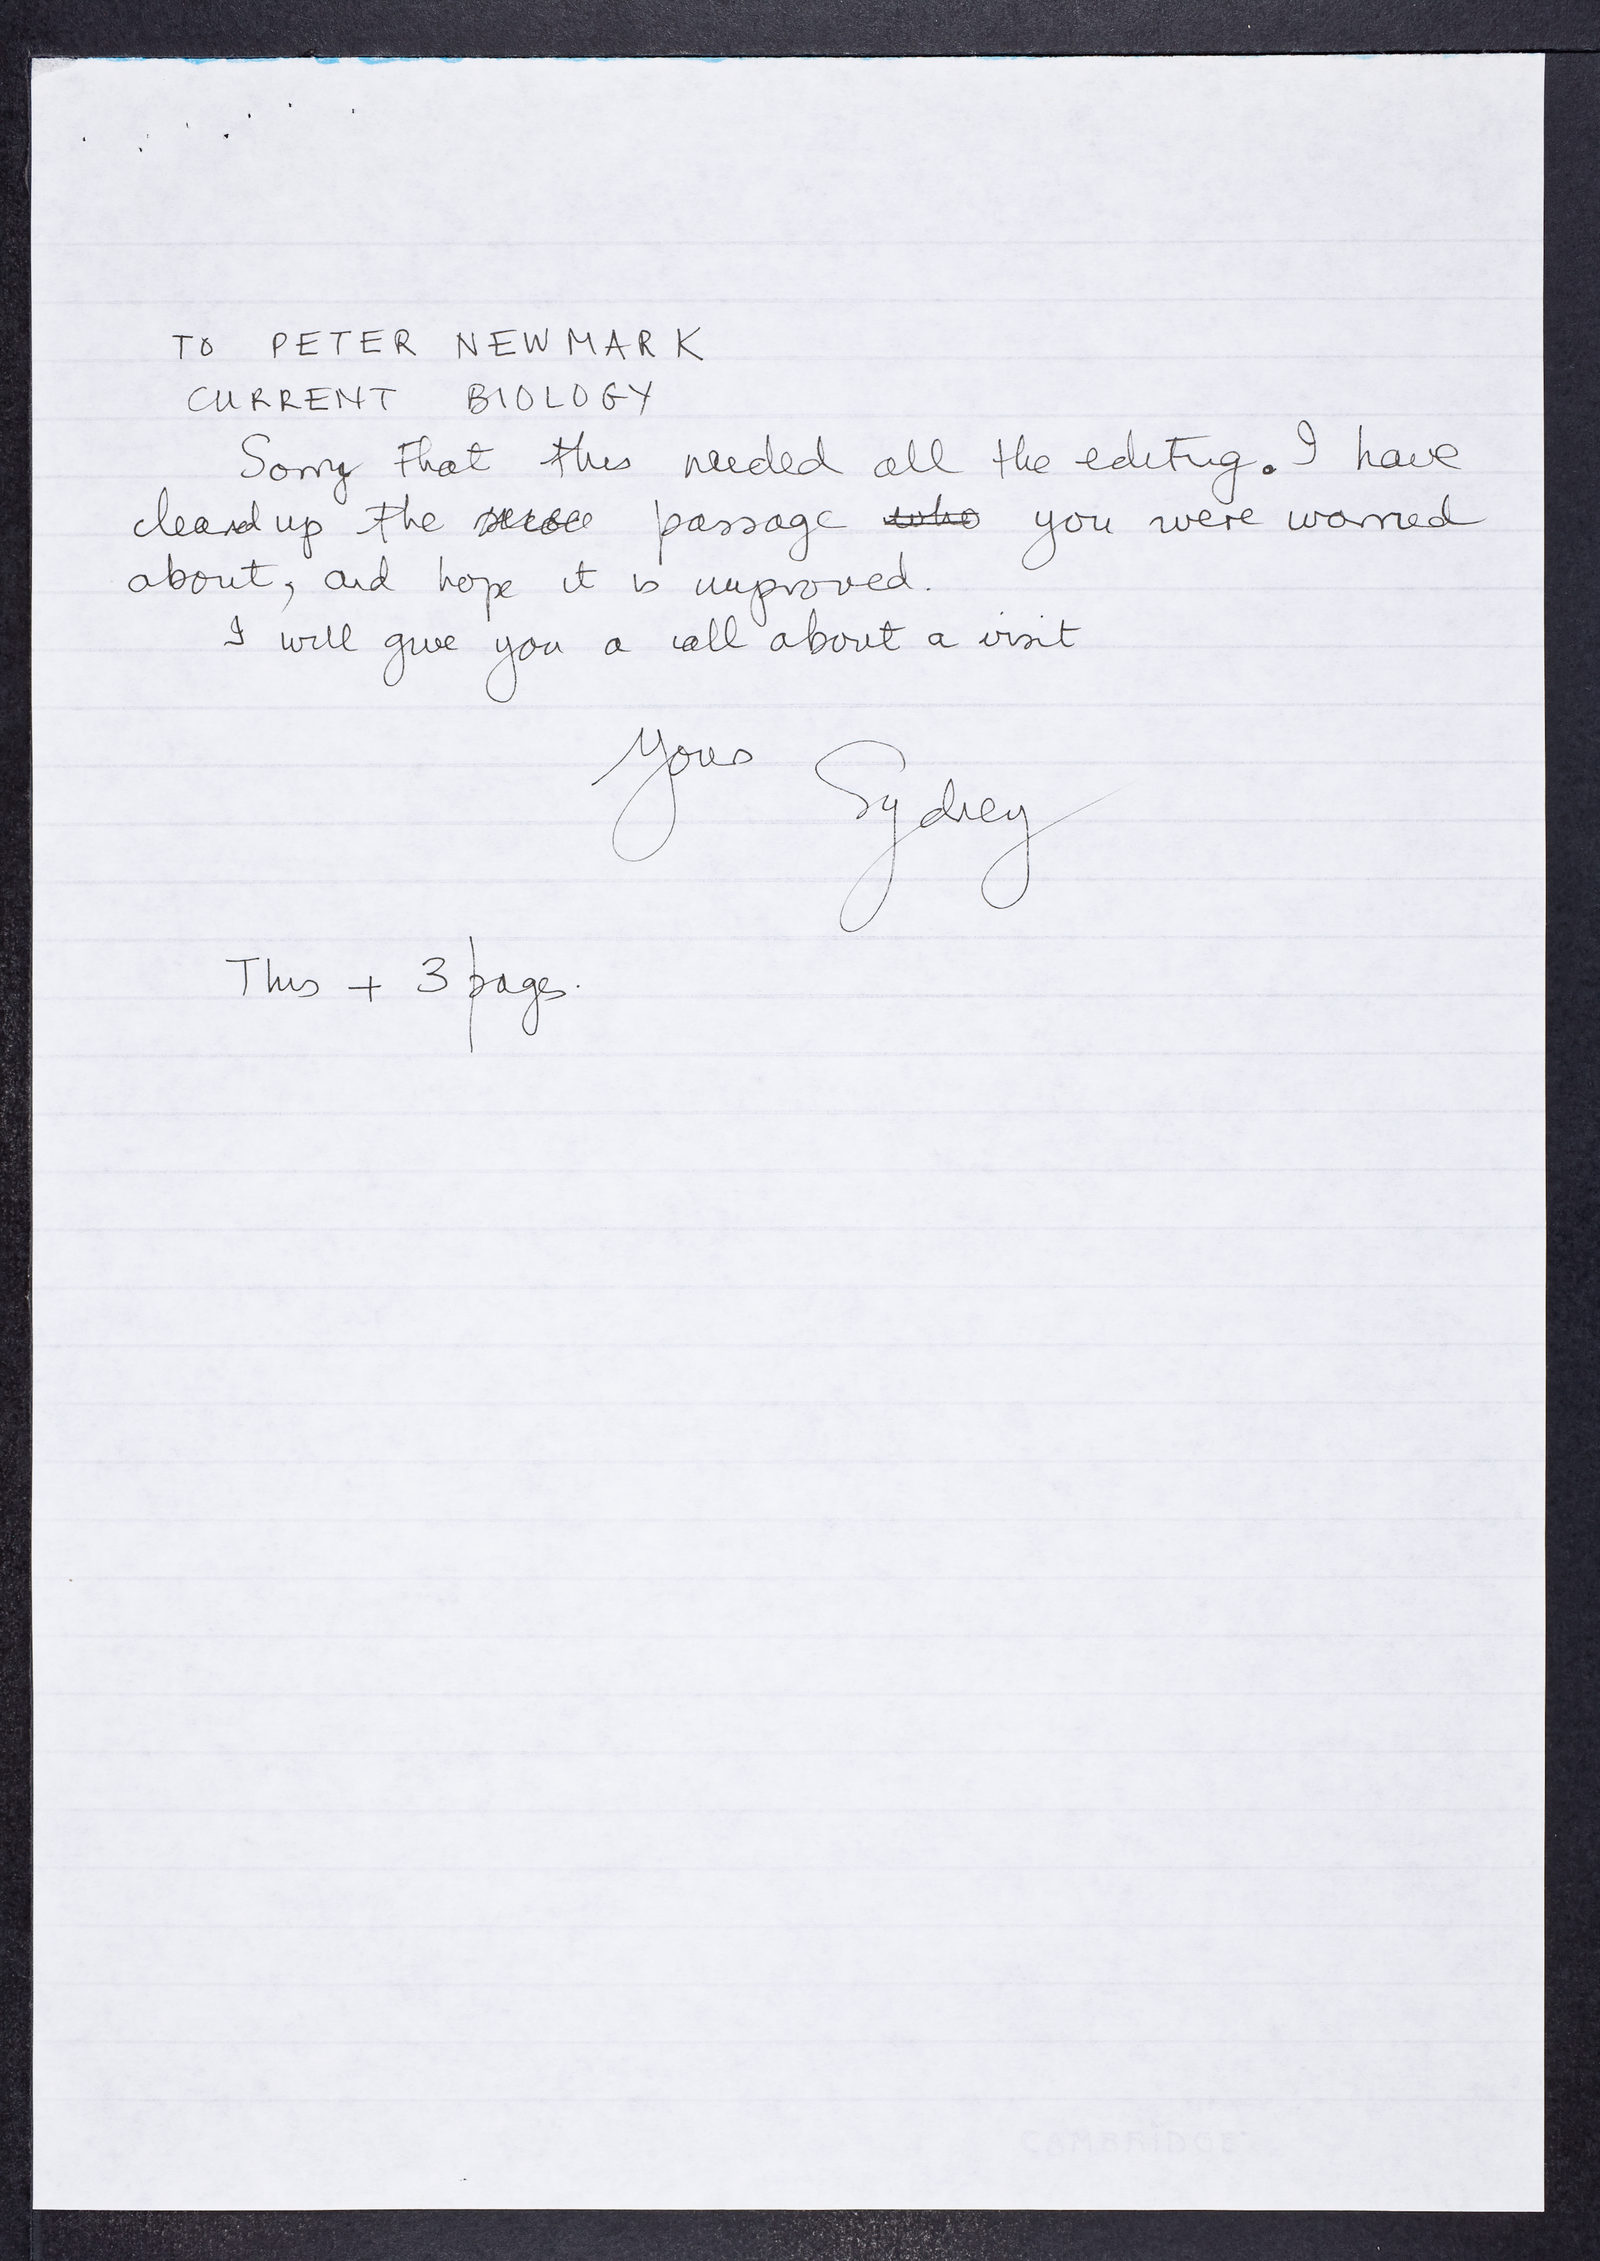 TO PETER NEWMARK
CURRENT BIOLOGY
Sorry that this needed all the editing. I have
cleared up the passage who you were worried
about, and hope it is improved.
I will give you a call about a visit
Yours Sydney
This + 3 pages.
CAMBRIDGE